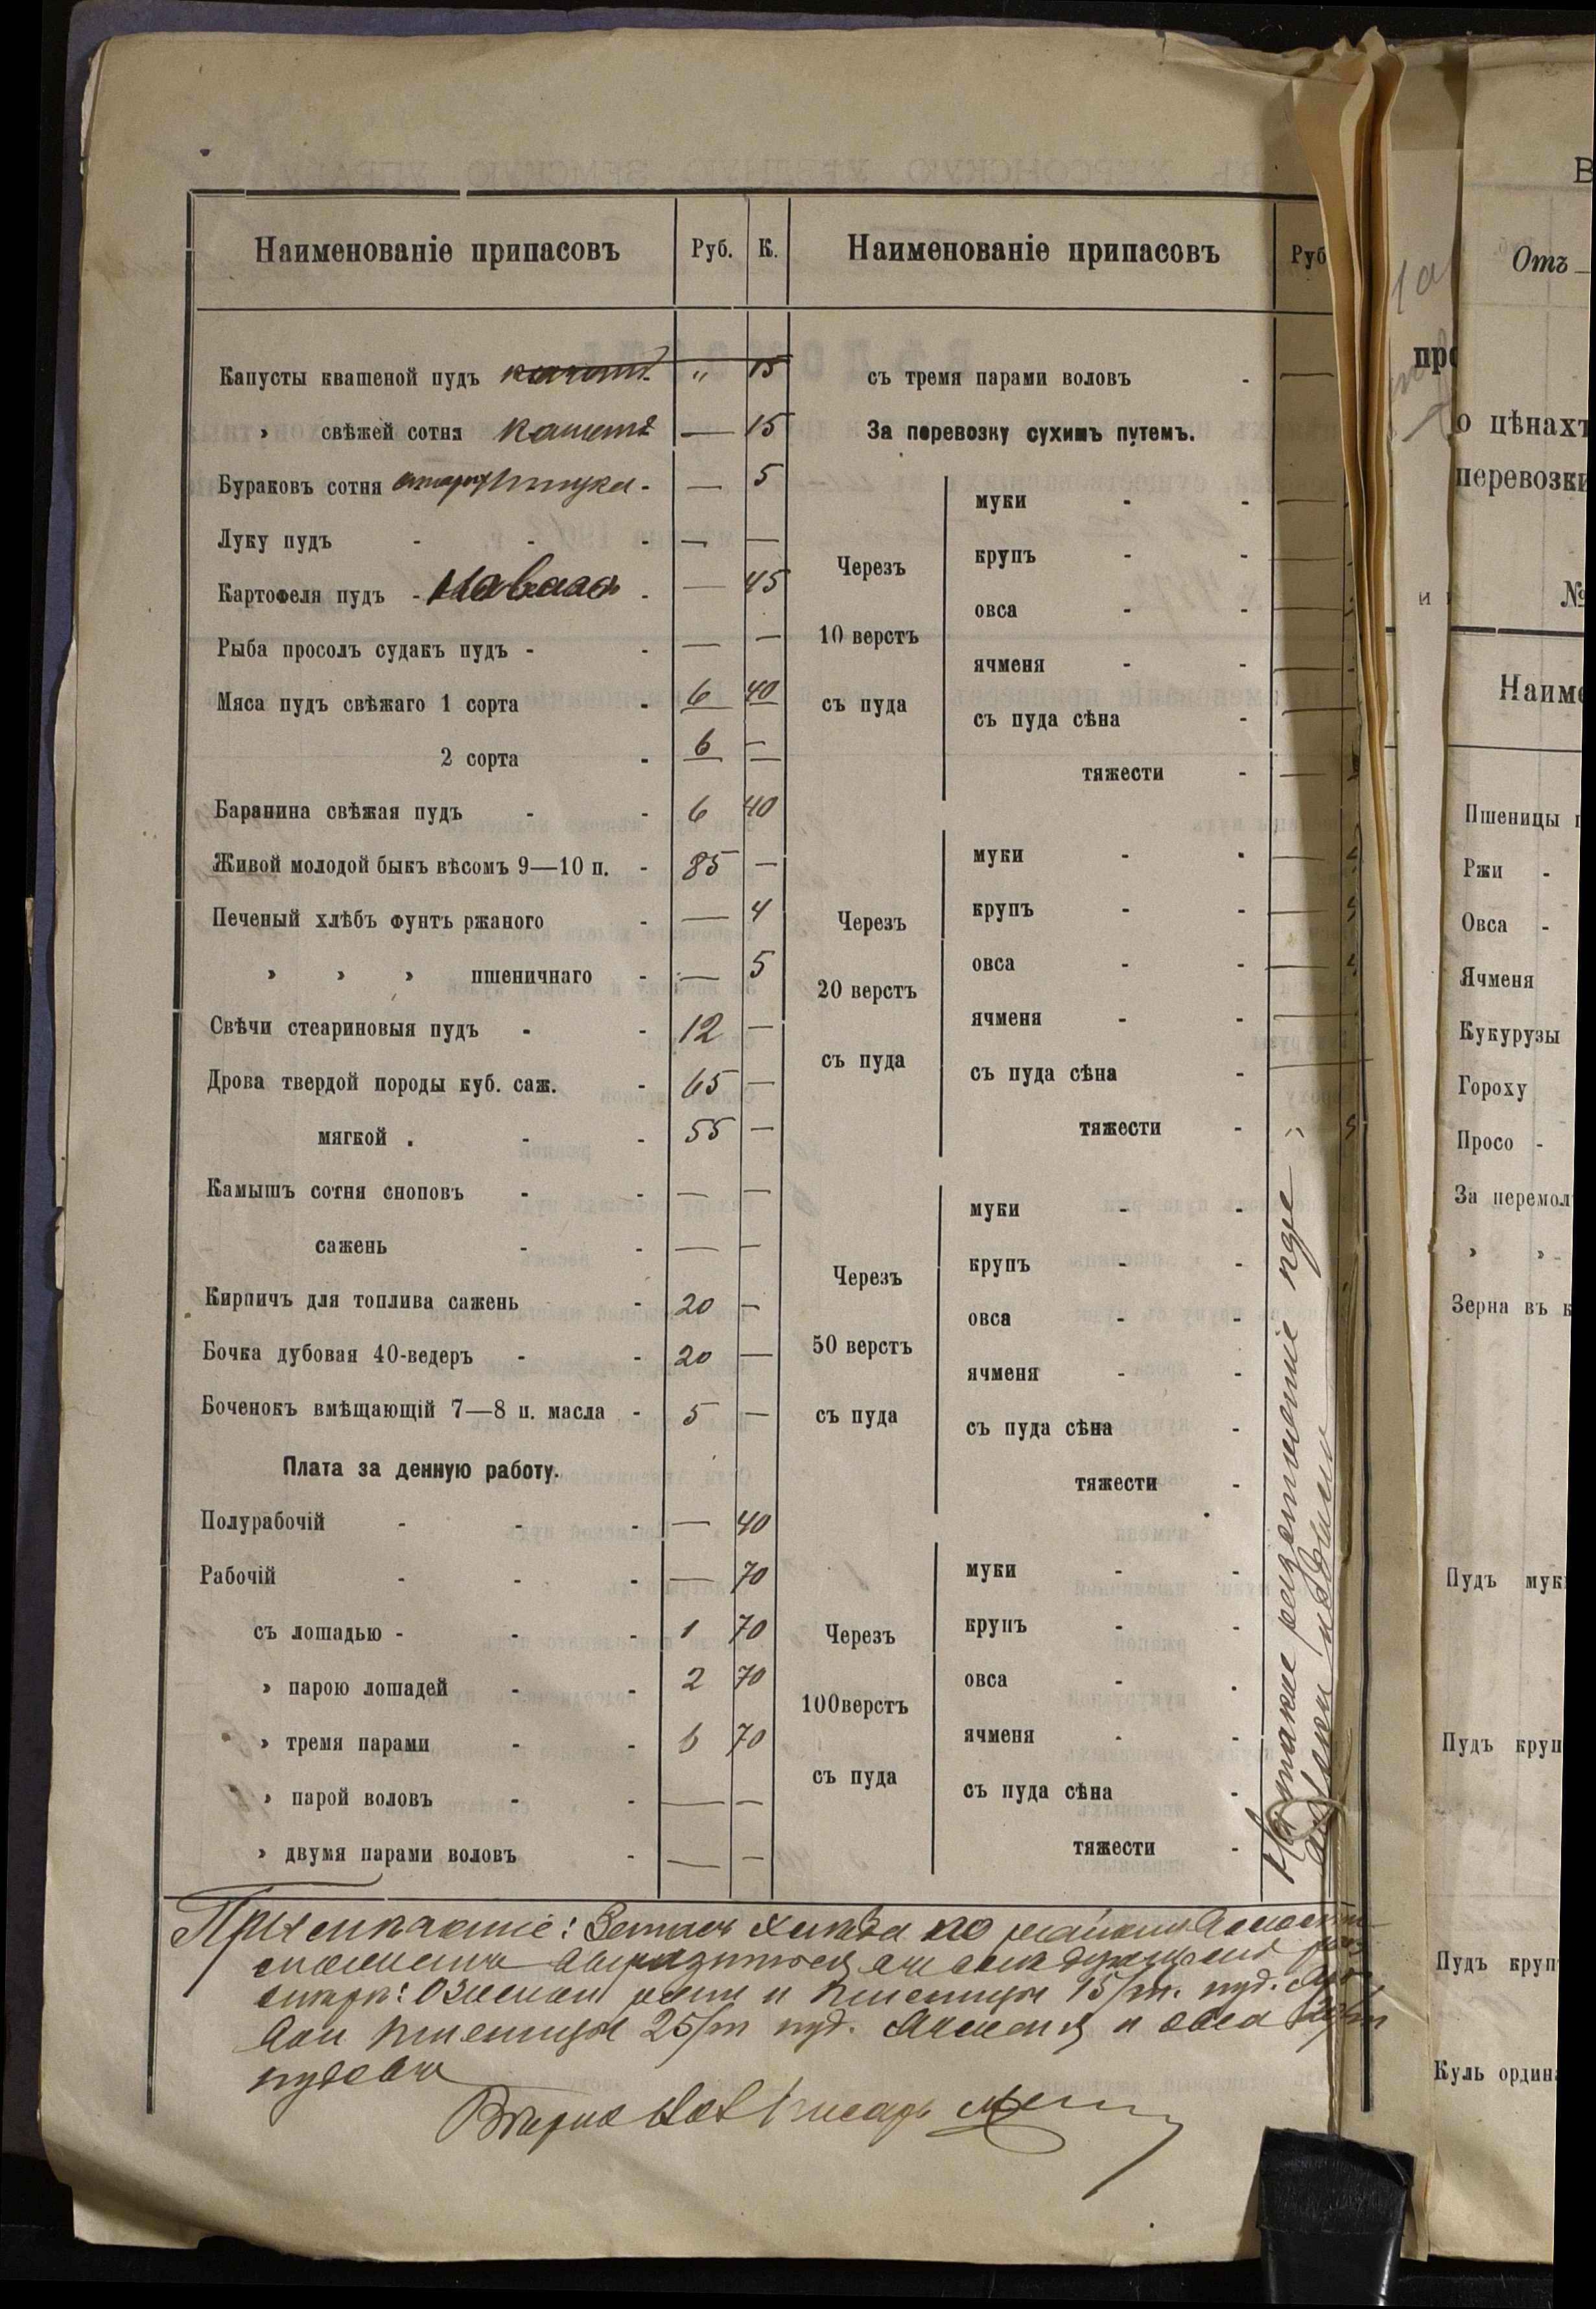 Наименованіе припасовъ Руб. К.
Капусты квашеной пудъ " 15
» свѣжей сотня — 15
Бураковъ сотня — 5
Луку пудъ - - - — —
Картофеля пудъ - - — 45
Рыба просолъ судакъ пудъ - - — —
Мяса пудъ свѣжаго 1 сорта - 6 40
2 сорта - 6 —
Баранина свѣжая пудъ - - 6 40
Живой молодой быкъ вѣсомъ 9—10 п. - 85 —
Печеный хлѣбъ фунтъ ржаного - — 4
» » » пшеничнаго - — 5
Свѣчи стеариновыя пудъ - - 12 —
Дрова твердой породы куб. саж. - 65 —
мягкой . - - 55 —
Камышъ сотня сноповъ - - — —
сажень - - — —
Кирпичъ для топлива сажень - 20 —
Бочка дубовая 40-ведеръ - - 20 —
Боченокъ вмѣщающій 7—8 п. масла - 5 —
Плата за денную работу.
Полурабочій - - - — 40
Рабочій - - - — 70
съ лошадью - - - 1 70
» парою лошадей - - 2 70
» тремя парами - - 70
» парой воловъ - - — —
» двумя парами воловъ - — —
Наименованіе припасовъ Руб
съ тремя парами воловъ - —
За перевозку сухимъ путемъ.
Черезъ
10 верстъ
съ пуда
муки - - —
крупъ - - —
овса - - —
ячменя - - —
съ пуда сѣна - —
тяжести - —
Черезъ
20 верстъ
съ пуда
муки - - —
крупъ - - —
овса - - —
ячменя - - —
съ пуда сѣна - —
тяжести - "
Черезъ
50 верстъ
съ пуда
муки - -
крупъ - -
овса - -
ячменя - -
съ пуда сѣна -
тяжести -
Черезъ
100верстъ
съ пуда
муки - -
крупъ - -
овса - -
ячменя - -
съ пуда сѣна -
тяжести -
На такое разстояніе
Примѣчаніе: хлѣба по
пшеницы 15/m. пуд.
пшеницы 25/m пуд. Ячменя и овса
пудовъ
Вѣрно Писарь
Отъ
о цѣнахъ
перевозки
№
Наиме
Пшеницы
Ржи -
Овса -
Ячменя
Кукурузы
Гороху
Просо -
За перемол
» »
Зерна въ к
Пудъ мук
Пудъ круп
Пудъ круп
Куль ордин